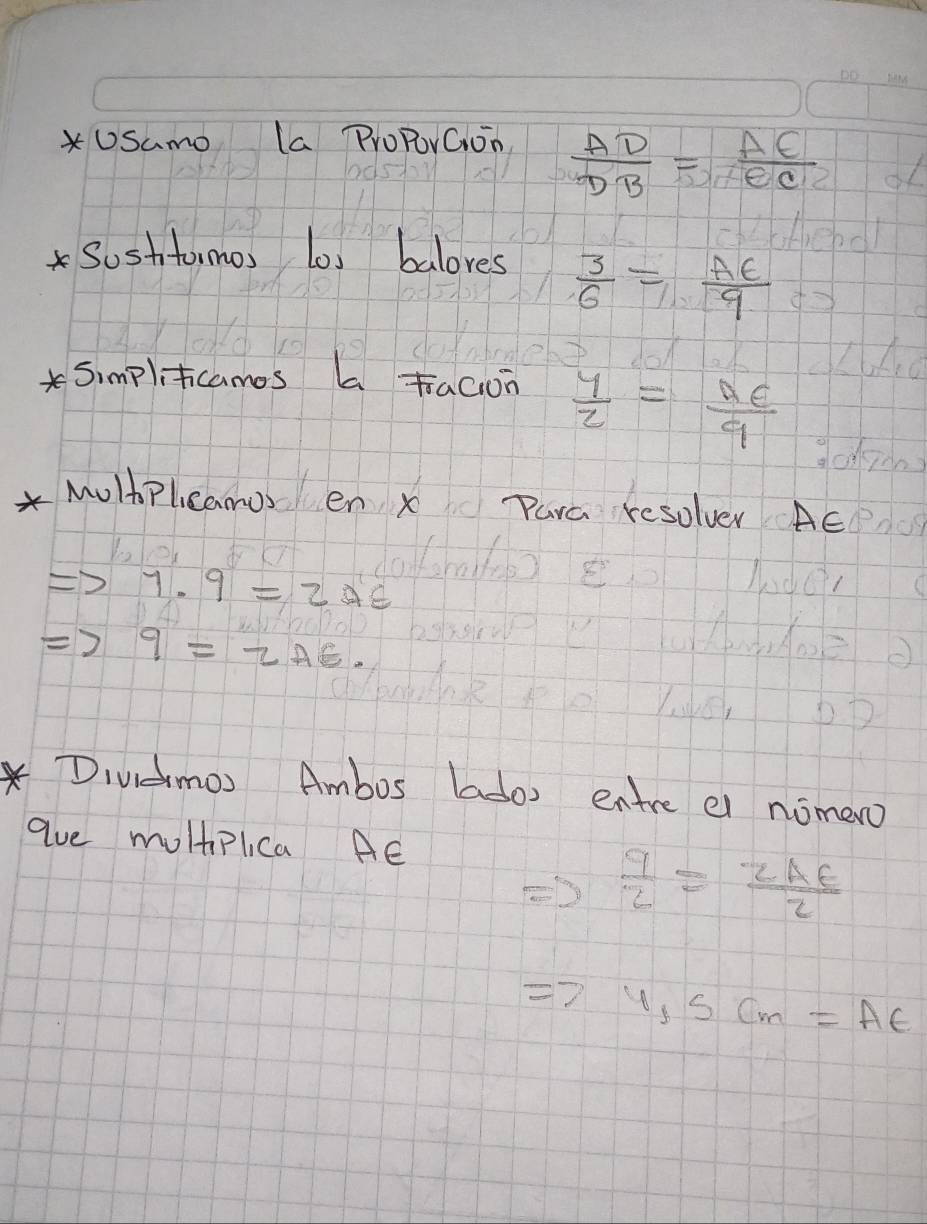 DD MM
* Usamo la Proporción AD/DB = AE/EC
* Sustituimos los balores 3/6 = AE/9
* Simplificamos la fración 1/2 = AE/9
* Multiplicamos en x Para resolver AE
=> 1.9 = 2AE
=> 9 = 2AE.
* Dividimos Ambos lados entre el número
que multiplica AE
=> 9/2 = 2AE/2
=> 4,5 cm = AE